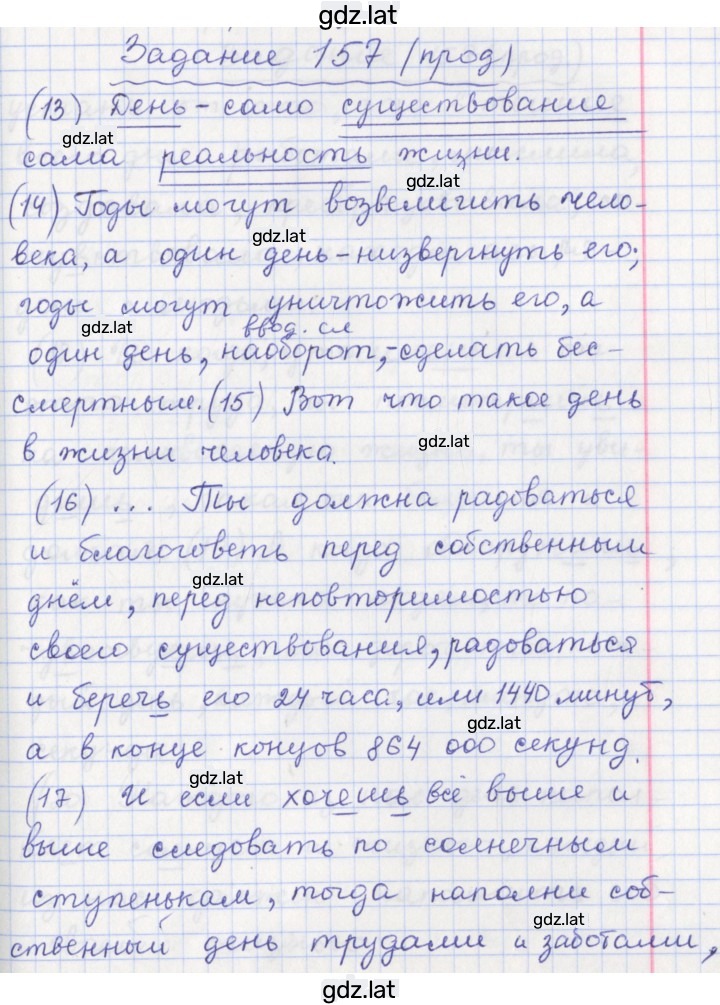 gdz.lat
Задание 157 (прод)
(13) День - само существование
gdz.lat
сама реальность жизни.
gdz.lat
(14) Годы могут возвеличить чело-
gdz.lat
века, а один день - низвергнуть его;
годы могут уничтожить его, а
gdz.lat
ввод. сл
один день, наоборот, - сделать бес-
смертным. (15) Вот что такое день
gdz.lat
в жизни человека.
(16) ... Ты должна радоваться
и благоговеть перед собственным
gdz.lat
днём, перед неповторимостью
своего существования, радоваться
и беречь его 24 часа, или 1440 минут,
gdz.lat
а в конце концов 864 000 секунд.
gdz.lat
(17) И если хочешь всё выше и
выше следовать по солнечным
ступенькам, тогда наполни соб-
gdz.lat
ственный день трудами и заботами,
gdz.lat